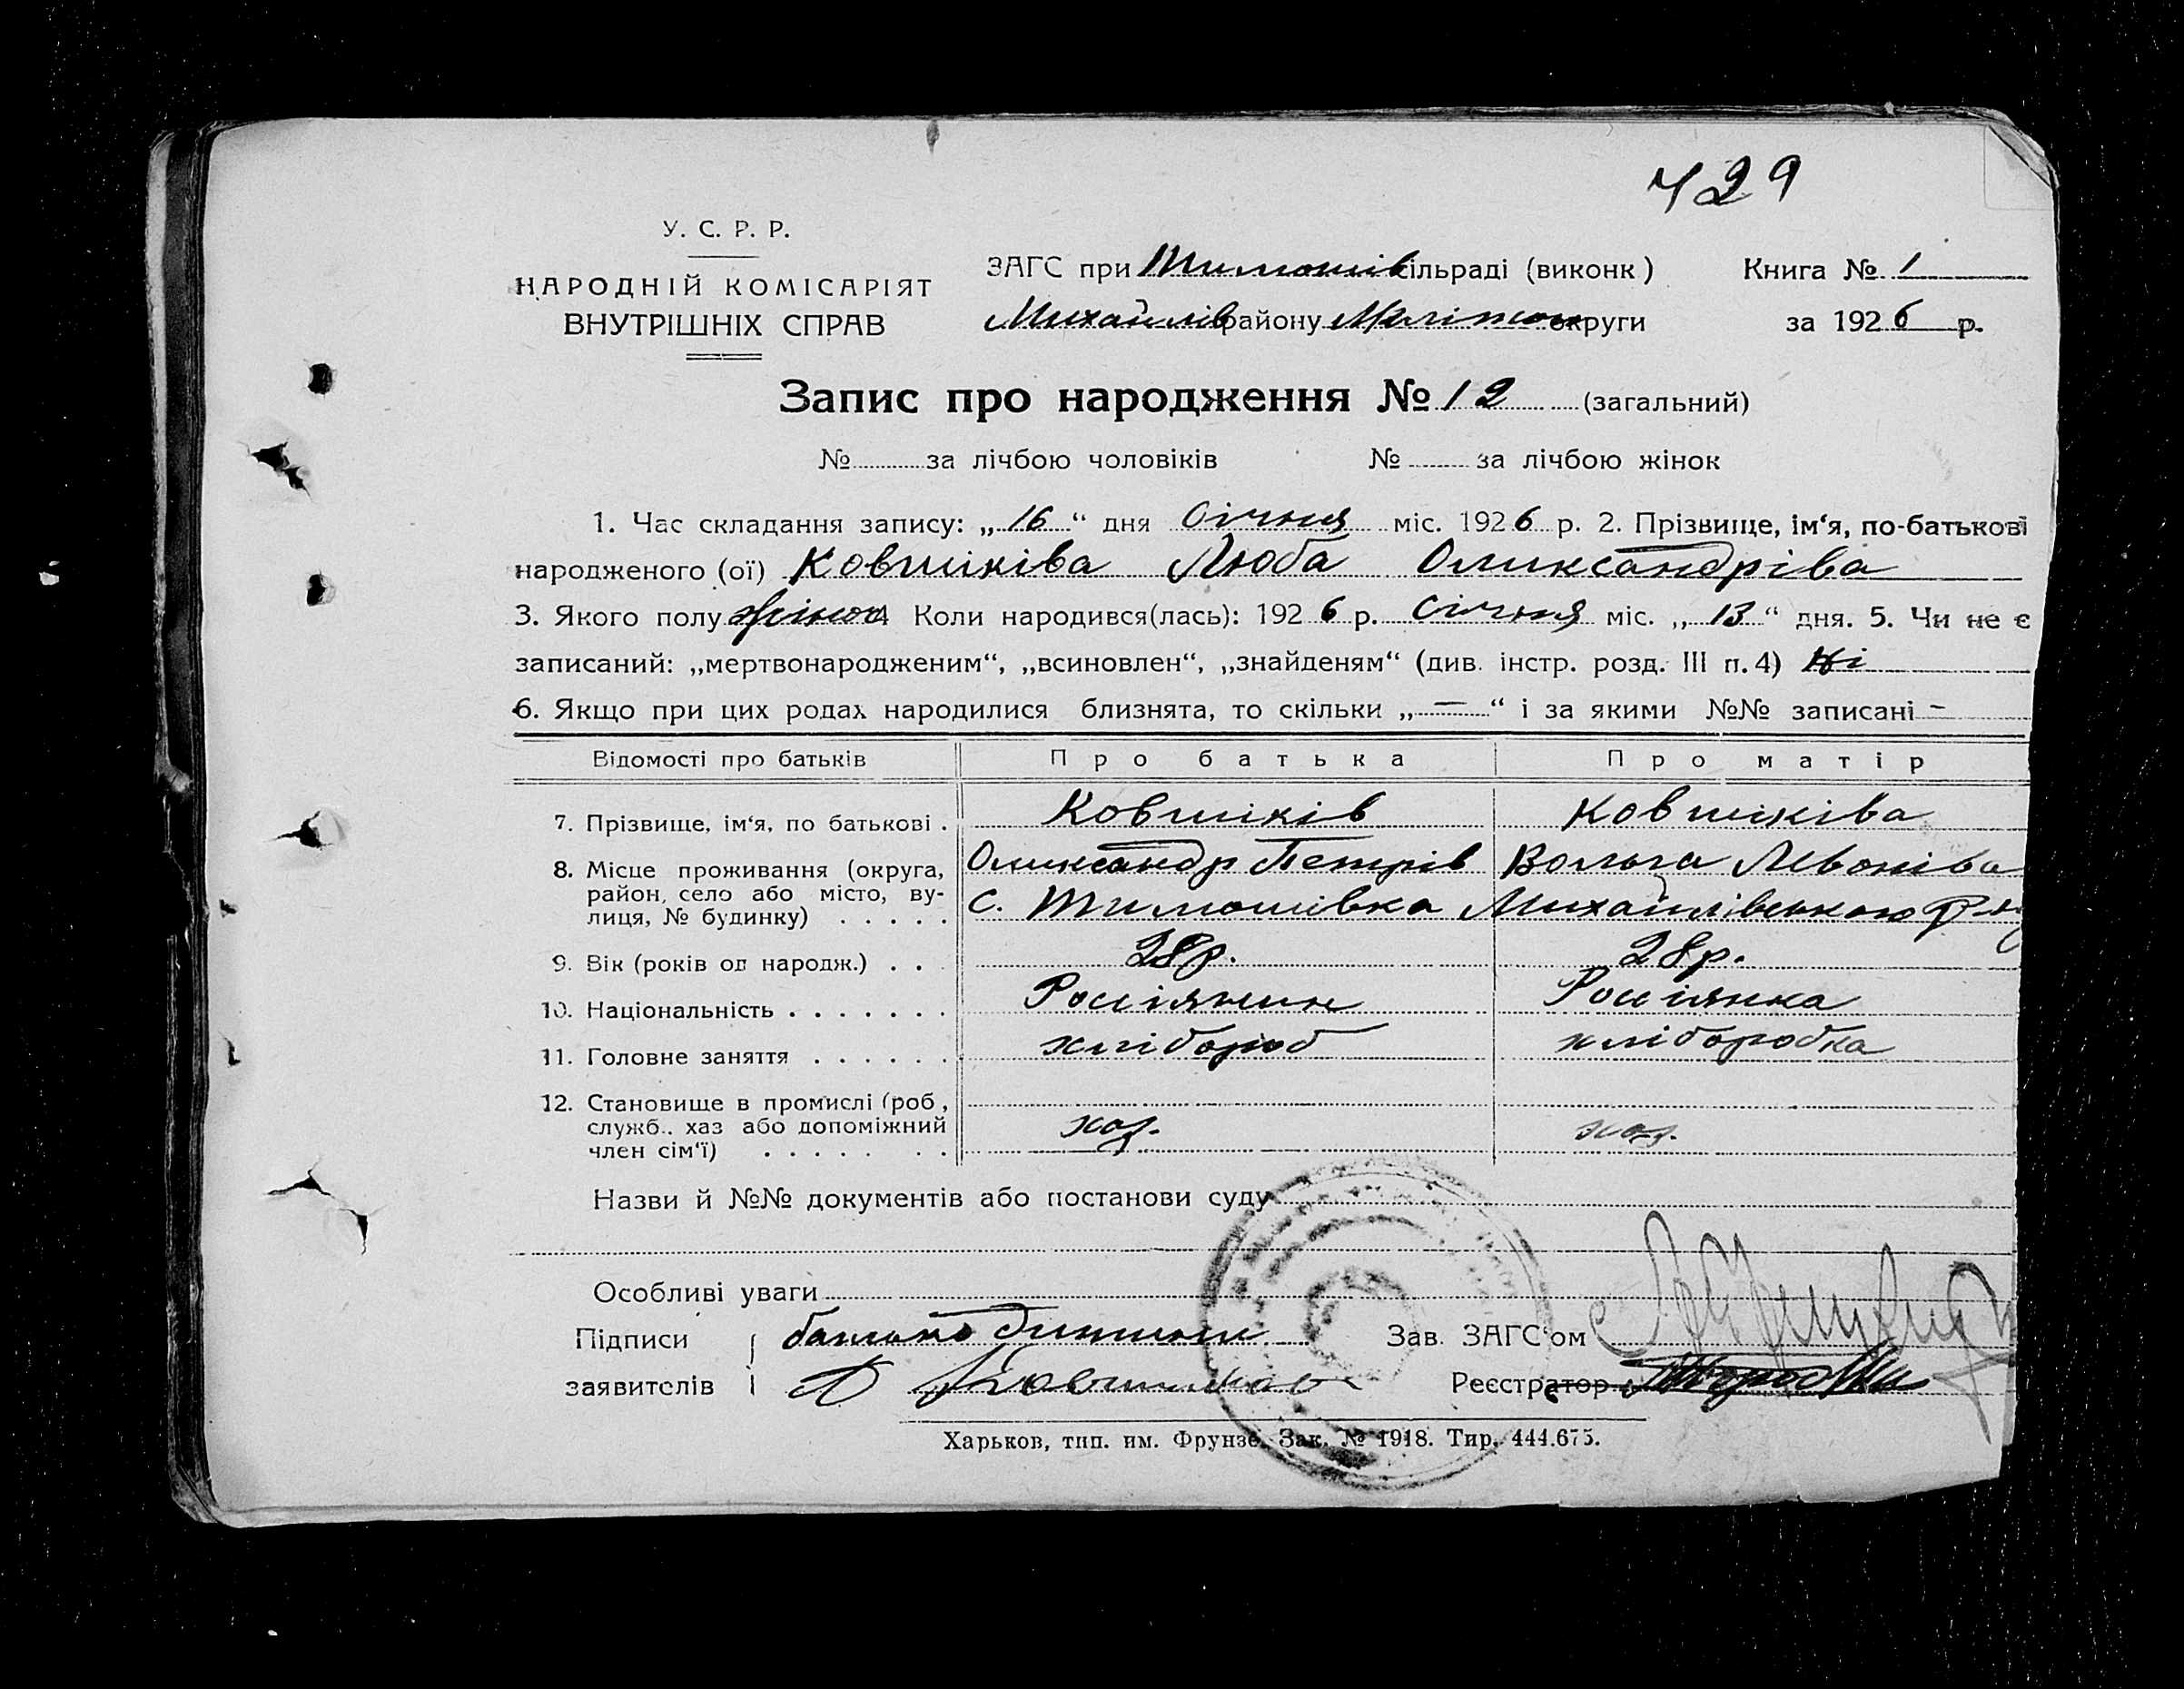 429
У. С. Р. Р.
НАРОДНІЙ КОМІСАРІЯТ
ВНУТРІШНІХ СПРАВ
ЗАГС при Тимошів сільраді (виконк)
Михайлів району Мелітоп округи
Книга № 1
за 1926 р.
Запис про народження № 12 (загальний)
№ за лічбою чоловіків № за лічбою жінок
1. Час складання запису: „16“ дня Січня міс. 1926 р. 2. Прізвище, ім‘я, по-батькові
народженого (ої) Ковшиківа Люба Оликсандріва
3. Якого полу жіноч 4 Коли народився(лась): 1926 р. Січня міс. „13“ дня. 5. Чи не є
записаний: „мертвонародженим“, „всиновлен“, „знайденям“ (див. інстр. розд. III п. 4) Ні
6. Якщо при цих родах народилися близнята, то скільки „—“ і за якими №№ записані -
Відомості про батьків Про батька Про матір
7. Прізвище, ім‘я, по батькові . Ковшиків Ковшиківа
Оликсандр Петрів Вольга Левоніва
8. Місце проживання (округа,
район, село або місто, ву-
лиця, № будинку) . . . . . С. Тимошівка Михайлівського Р-ну
9. Вік (років од народж.) . . 28р. 28р.
10. Національність . . . . . . . Росіянин Росіянка
11. Головне заняття . . . . . . хлібороб хліборобка
12. Становище в промислі (роб,
служб., хаз або допоміжний
член сім‘ї) . . . . . . . хаз. хаз.
Назви й №№ документів або постанови суду
Особливі уваги
Підписи
заявителів
батько дитини
Зав. ЗАГС‘ом
Реєстратор
Харьков, тип. им. Фрунзе. Зак. № 1918. Тир. 444.675.